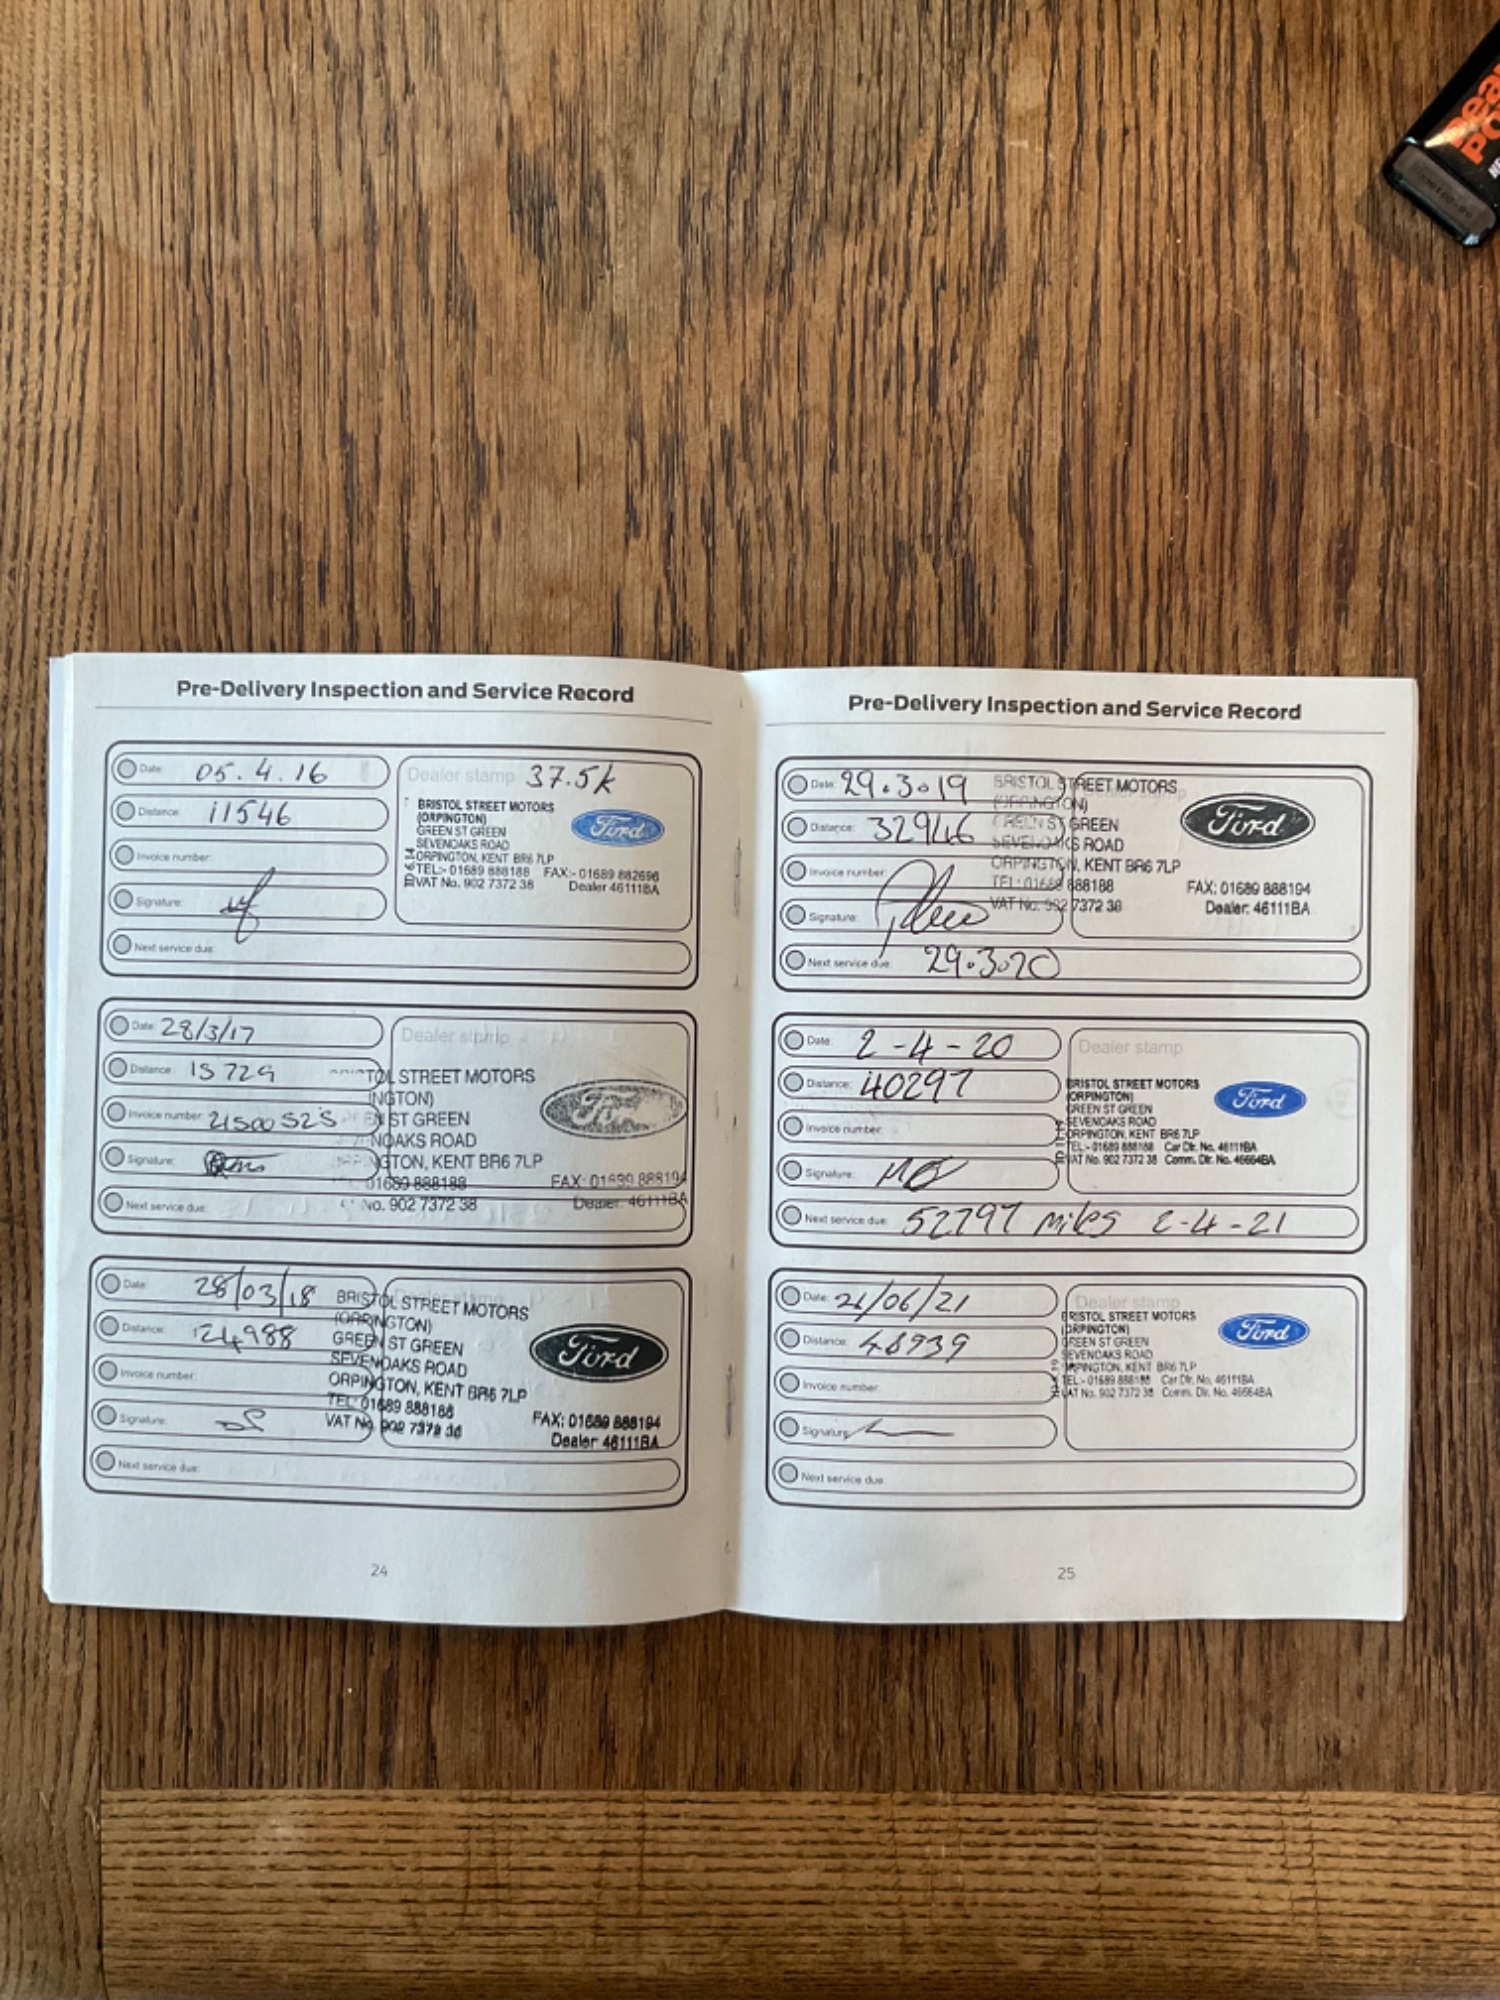 Pre-Delivery Inspection and Service Record
Date: 05.4.16
Dealer stamp 37.5k
Distance: 11546
BRISTOL STREET MOTORS
(ORPINGTON)
GREEN ST GREEN
SEVENOAKS ROAD
ORPINGTON, KENT BR6 7LP
TEL:- 01689 888188 FAX:- 01689 882696
VAT No. 902 7372 38 Dealer 46111BA
Ford
Invoice number:
Signature:
Next service due:
Date: 28/3/17
Dealer stamp
Distance: 15729
STREET MOTORS
ST GREEN
ROAD
KENT BR6 7LP
01689 888188 FAX: 01689 888194
No. 902 7372 38 Dealer: 46111BA
Invoice number:
Signature:
Next service due:
Date: 28/03/18
Dealer stamp
Distance: 24988
BRISTOL STREET MOTORS
(ORPINGTON)
GREEN ST GREEN
SEVENOAKS ROAD
ORPINGTON, KENT BR6 7LP
TEL: 01689 888188 FAX: 01689 888194
VAT No. 902 7372 38 Dealer: 46111BA
Ford
Invoice number:
Signature:
Next service due:
24
Pre-Delivery Inspection and Service Record
Date: 29.3.19
Distance: 32946
BRISTOL STREET MOTORS
(ORPINGTON)
GREEN ST GREEN
SEVENOAKS ROAD
ORPINGTON, KENT BR6 7LP
TEL: 01689 888188 FAX: 01689 888194
VAT No. 902 7372 38 Dealer: 46111BA
Ford
Invoice number:
Signature:
Next service due: 29.3.20
Date: 2-4-20
Dealer stamp
Distance: 40297
BRISTOL STREET MOTORS
(ORPINGTON)
GREEN ST GREEN
SEVENOAKS ROAD
ORPINGTON, KENT BR6 7LP
TEL:- 01689 888188 Car Dlr. No. 46111BA
VAT No. 902 7372 38 Comm. Dlr. No. 46664BA
Ford
Invoice number:
Signature:
Next service due: 52797 miles 2-4-21
Date: 21/06/21
Dealer stamp
Distance: 48939
BRISTOL STREET MOTORS
(ORPINGTON)
GREEN ST GREEN
SEVENOAKS ROAD
ORPINGTON, KENT BR6 7LP
TEL:- 01689 888188 Car Dlr. No. 46111BA
VAT No. 902 7372 38 Comm. Dlr. No. 46664BA
Ford
Invoice number:
Signature:
Next service due:
25